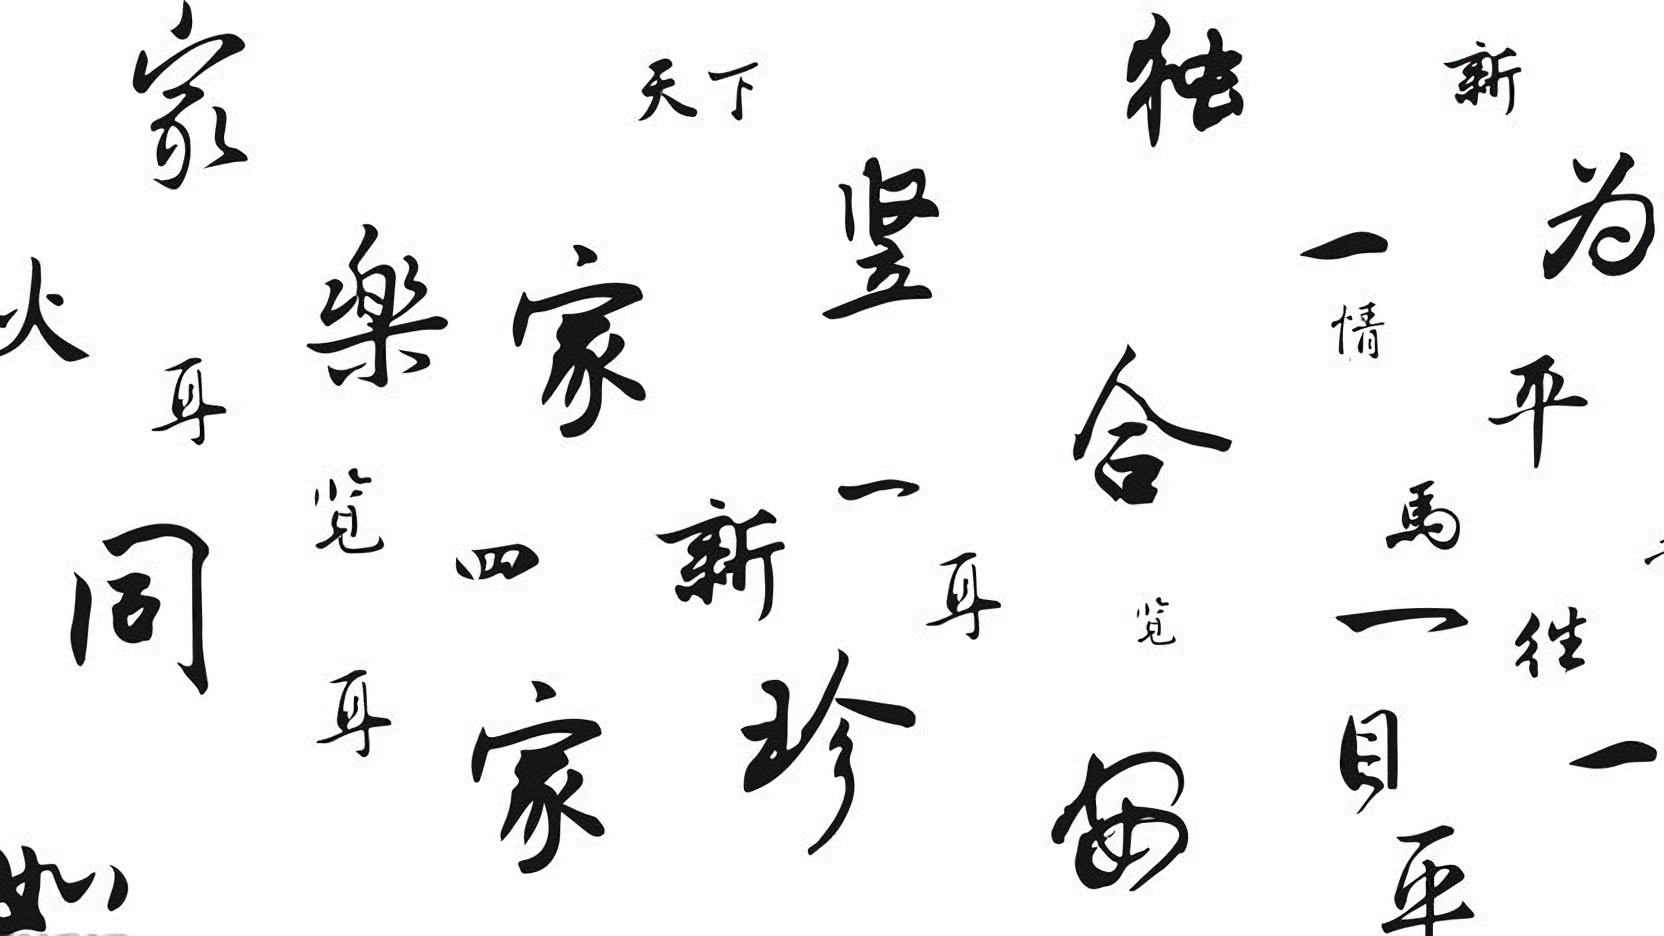 家
天下
独
新
竖
为
一
火
樂
家
情
耳
合
平
览
一
馬
同
四
新
耳
览
一
往
耳
家
珍
目
一
安
平
如